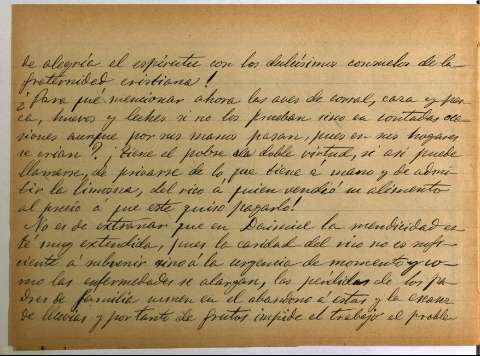 de alegría el espíritu con los dulcísimos consuelos de la
fraternidad cristiana!
¿Para qué mencionar ahora las aves de corral, caza y pes-
ca, huevos y leches si no los prueban sino en contadas oca-
siones aunque por sus manos pasan, pues en sus hogares
se crian? ¡Tiene el pobre la doble virtud, si así puede
llamarse, de privarse de lo que tiene a mano y de admi-
tir la limosna, del rico a quien vendió su alimento
al precio á que este quiso pagarlo!
No es de extrañar que en Daimiel la mendicidad es-
té muy extendida, pues la caridad del rico no es sufi-
ciente á subvenir sino á la urgencia de momento y co-
mo las enfermedades se alargan, las pérdidas de los pa-
dres de familia sumen en el abandono á éstas y la escasez
de lluvias y por tanto de frutos impide el trabajo el proble-